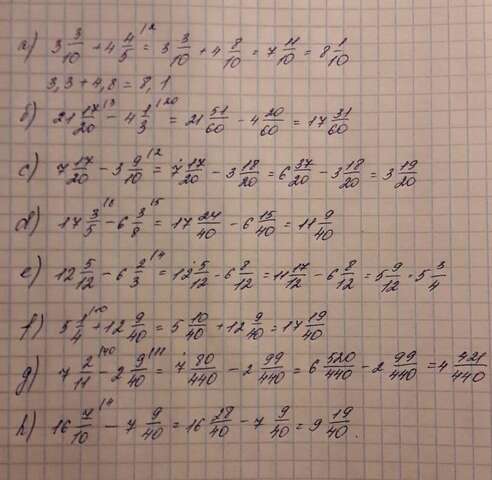 a) 3 3/10 + 4 4/5 /2 = 3 3/10 + 4 8/10 = 7 11/10 = 8 1/10
3,3 + 4,8 = 8,1
б) 21 17/20 /3 - 4 1/3 /20 = 21 51/60 - 4 20/60 = 17 31/60
c) 7 17/20 - 3 9/10 /2 = 7 17/20 - 3 18/20 = 6 37/20 - 3 18/20 = 3 19/20
d) 17 3/5 /8 - 6 3/8 /5 = 17 24/40 - 6 15/40 = 11 9/40
e) 12 5/12 - 6 2/3 /4 = 12 5/12 - 6 8/12 = 11 17/12 - 6 8/12 = 5 9/12 = 5 3/4
f) 5 1/4 /10 + 12 9/40 = 5 10/40 + 12 9/40 = 17 19/40
g) 7 2/11 /40 - 2 9/40 /11 = 7 80/440 - 2 99/440 = 6 520/440 - 2 99/440 = 4 421/440
h) 16 7/10 /4 - 7 9/40 = 16 28/40 - 7 9/40 = 9 19/40.